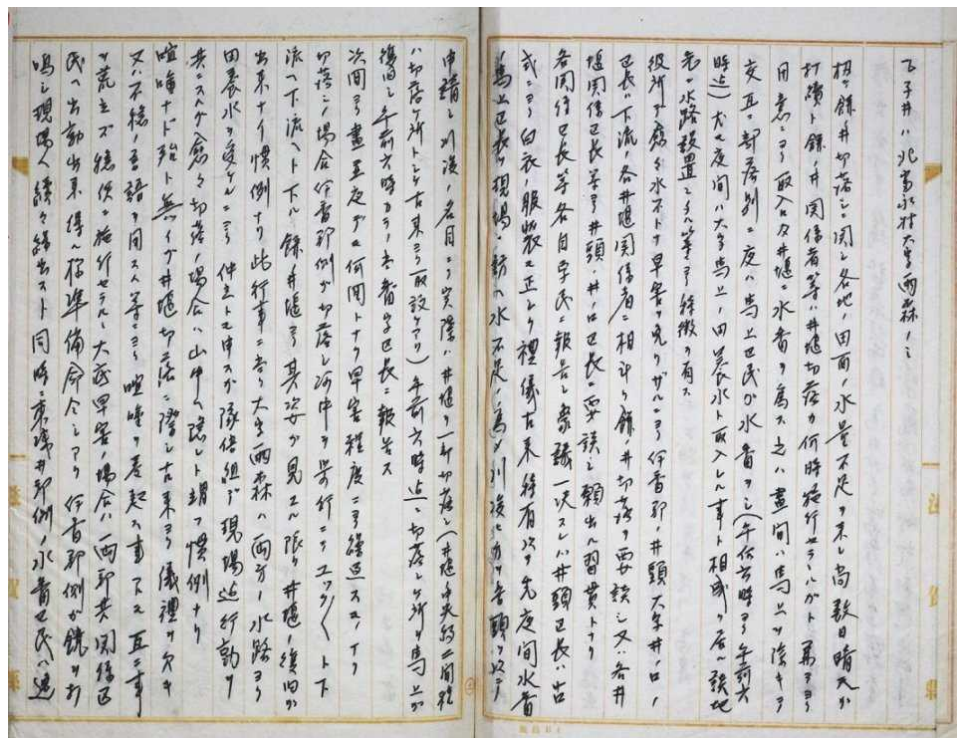 乙子井ハ北富永村大字雨森ノミ
扨テ餘井切落シニ関シ各地ノ田面ノ水量不足ヲ来シ尚数日晴天ガ
打續ト餘ノ井関係者等ハ井堰切落カ何時施行セラルルカト
日 意ニヨリ取入口及井堰ニ水番ヲ 之ハ晝間ハ馬上ヲ除キ
交互ニ部落別ニ夜ハ馬上区民ガ水番ヲシ(午后六時ヨリ午前六
時迄)尤モ夜間ハ大字馬上ノ田養水ト取入レル事ト相成リ居ル該地
先ニ水路設置シ 等ヨリ特徴ヲ有ス
愈々水不トナリ旱害ヲ免リザルニヨリ伊香郡ノ井頭大字井ノ口ノ
区長ハ下流ノ各井堰関係者ニ相計リ餘ノ井切落ヲ要談シ又各井
堰関係区長等ヨリ井頭ノ井ノ口区長ニ要談シ願出ル習慣トナリ
各関係区長等各自字民ニ報告シ衆議一決スレバ井頭区長ハ古
式ニヨリ白衣ノ服装モ正シク禮儀古来特有以テ先夜間水番
馬上区長ヲ現場ニ訪ヘ水不足ノ為メ川 以テ
申請シ川 ノ名目ニテ実際ハ井堰ヲ一部切落シ(井堰中央約二間程
ハ切落ケ所トシテ古来ヨリ取設ケアリ)午前六時迄ニ切落シケ所ヲ馬上ガ
復旧シ午前六時カラノ水番字区長ニ報告ス
次 ヨリ晝 夜デモ何 トナク旱害程度ニヨリ繰返スモノナリ
切落シノ場合伊香郡側ガ切落シ河中ヲ歩行ニテユックリト下
流ヘ下流ヘト下ル餘井堰ヨリ其姿ガ見エル限リ井堰ノ復旧ガ
出来ナイ慣例ナリ此行事ニ当リ大字雨森ハ両方ノ水路ヨリ
田養水ヲ受ケルニヨリ仲立ト申スガ隊伍組デ現場迄行動ヲ
共ニスルガ愈々切落ノ場合ハ山中ヘ隠レト謂フ慣例ナリ
喧嘩ナド殆ト無イガ井堰切落ニ際シ古来ヨリ儀禮ヲ欠キ
又ハ不穏ノ言語ヲ 等ニヨリ喧嘩ヲ惹起ス事アル互ニ事
ヲ荒立ズ穏便ニ施行セラル大旱害ノ場合ハ両郡共関係区
民ヘ出動出来得ル様準備命令シアリ伊香郡側ガ鐘ヲ打
鳴シ現場ヘ続々繰出スト同時ニ東浅井郡側ノ水番区民ハ逸
滋賀縣